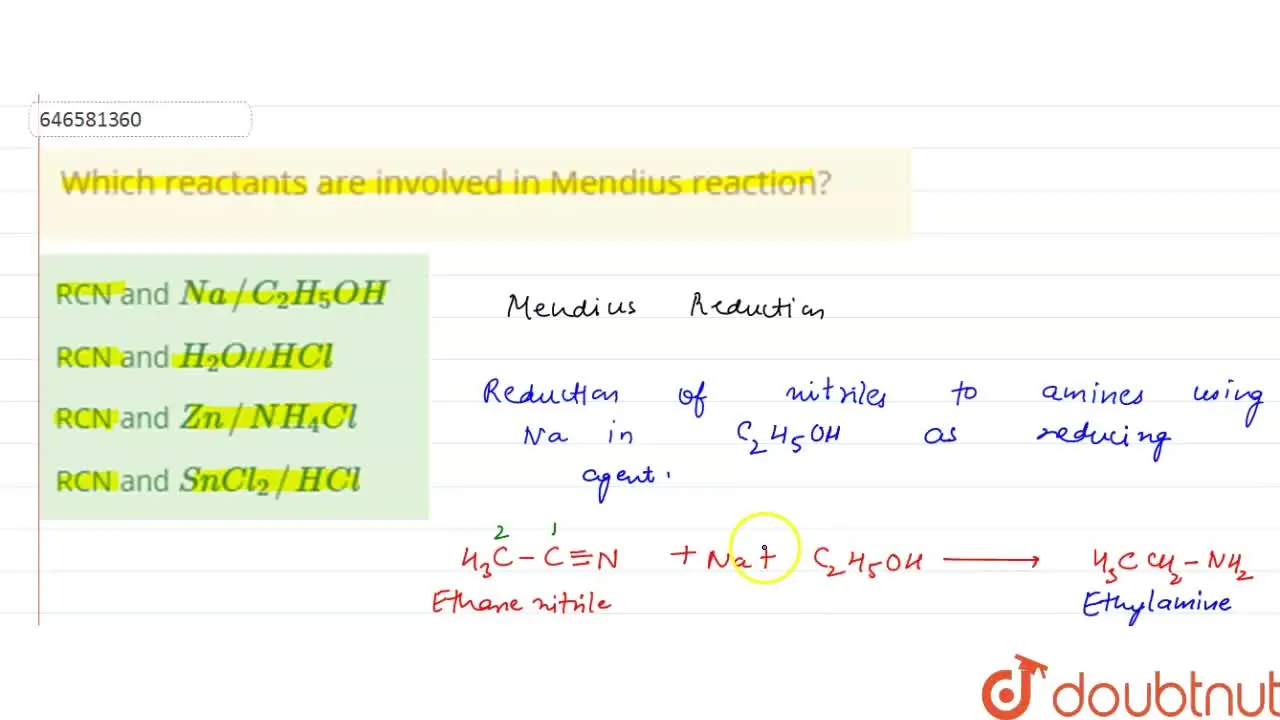 646581360
Which reactants are involved in Mendius reaction?
RCN and Na/C₂H₅OH
RCN and H₂O//HCl
RCN and Zn/NH₄Cl
RCN and SnCl₂/HCl
Mendius Reduction
Reduction of nitriles to amines using
Na in C₂H₅OH as reducing
agent.
2 1
H₃C-C≡N + Na + C₂H₅OH ⟶ H₃CCH₂-NH₂
Ethane nitrile Ethylamine
doubtnut